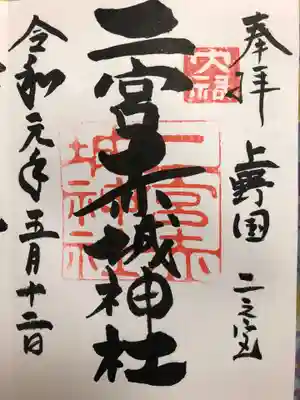 奉拝 上野国 二之宮
二宮赤城神社
二宮赤城神社
令和元年五月十二日